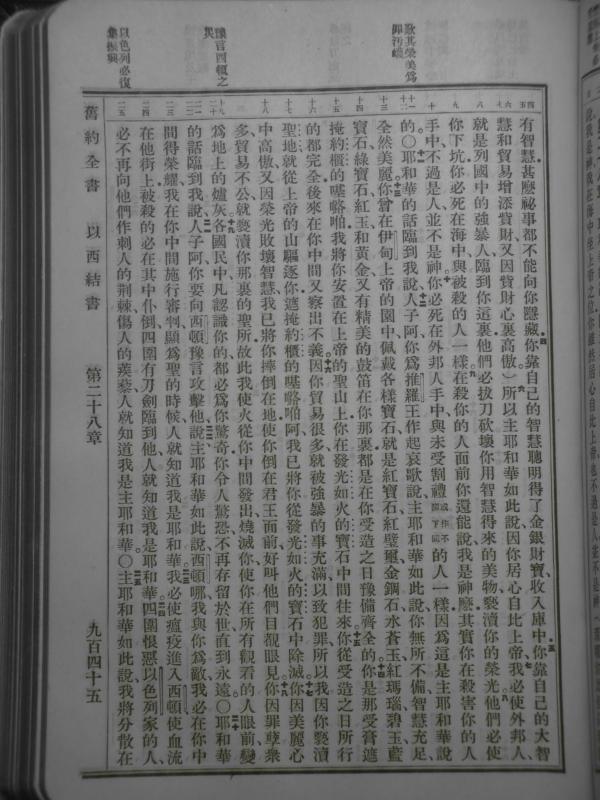 有智慧甚麼祕事都不能向你隱藏你靠自己的智慧聰明得了金銀財寶收入庫中你靠自己的大智
慧和貿易增添貲財又因貲財心裏高傲)所以主耶和華如此說因你居心自比上帝我必使外邦人
就是列國中的強暴人臨到你這裏他們必拔刀砍壞你用智慧得來的美物褻瀆你的榮光他們必使
你下坑你必死在海中與被殺的人一樣在殺你的人面前你還能說我是神麼其實你在殺害你的人
手中不過是人並不是神你必死在外邦人手中與未受割禮的人一樣因為這是主耶和華說
的○耶和華的話臨到我說人子阿你為推羅王作起哀歌說主耶和華如此說你無所不備智慧充足
全然美麗你曾在伊甸上帝的園中佩戴各樣寶石就是紅寶石紅璧璽金鋼石水蒼玉紅瑪瑙碧玉藍
寶石綠寶石紅玉和黃金又有精美的鼓笛在你那裏都是在你受造之日豫備齊全的你是那受膏遮
掩約櫃的𠼻咯啪我將你安置在上帝的聖山上你在發光如火的寶石中間往來你從受造之日所行
的都完全後來在你中間又察出不義因你貿易很多就被強暴的事充滿以致犯罪所以我因你褻瀆
聖地就從上帝的山驅逐你遮掩約櫃的𠼻咯啪阿我已將你從發光如火的寶石中除滅你因美麗心
中高傲又因榮光敗壞智慧我已將你摔倒在地使你倒在君王面前好叫他們目覩眼見你因罪孽眾
多貿易不公就褻瀆你那裏的聖所故此我使火從你中間發出燒滅你使你在所有觀看的人眼前變
為地上的爐灰各國民中凡認識你的都必為你驚奇你令人驚恐不再存留於世直到永遠○耶和華
的話臨到我說人子阿你要向西頓豫言攻擊他說主耶和華如此說西頓哪我與你為敵我必在你中
間得榮耀我在你中間施行審判顯為聖的時候人就知道我是耶和華我必使瘟疫進入西頓使血流
在他街上被殺的必在其中仆倒四圍有刀劍臨到他人就知道我是耶和華四圍恨惡以色列家的人
必不再向他們作刺人的荊棘傷人的蒺藜人就知道我是主耶和華○主耶和華如此說我將分散在
歎其榮美為罪污衊
豫言西頓之災
以色列必復集振興
舊約全書 以西結書 第二十八章 九百四十五